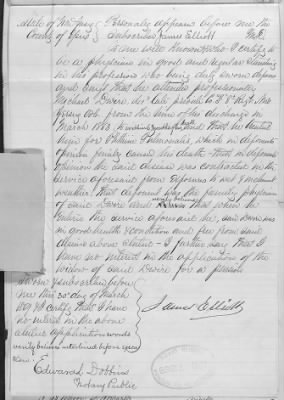 State of New Jersey } Personally appears before me the
County of } Subscriber James Elliott M.D.
to me well known & who I certify to
be a physician in good and regular standing
in his profession who being duly sworn deposes
and says that he attended professionally
Michael Dwire late private Co. 8th Regt New
Jersey Vols. from the time of his discharge in
March 1863 to death and that he treated
him for Phthisis Pulmonalis, which in deponents
opinion finally caused his death that in deponents
opinion the said disease was contracted in the
service aforesaid from exposure to wet & inclement
weather. That deponent was the family physician
of said Dwire and verily believes that when he
entered the service aforesaid he, said Dwire was
in good health & condition and free from said
disease above stated - I further say that I
have no interest in the application of the
widow of said Dwire for a pension
Sworn & subscribed before
me this 30th day of March
& I certify that I have
no interest in the above
application words
verily believes interlined before
James Elliott
Edward Dobbins
Notary Public